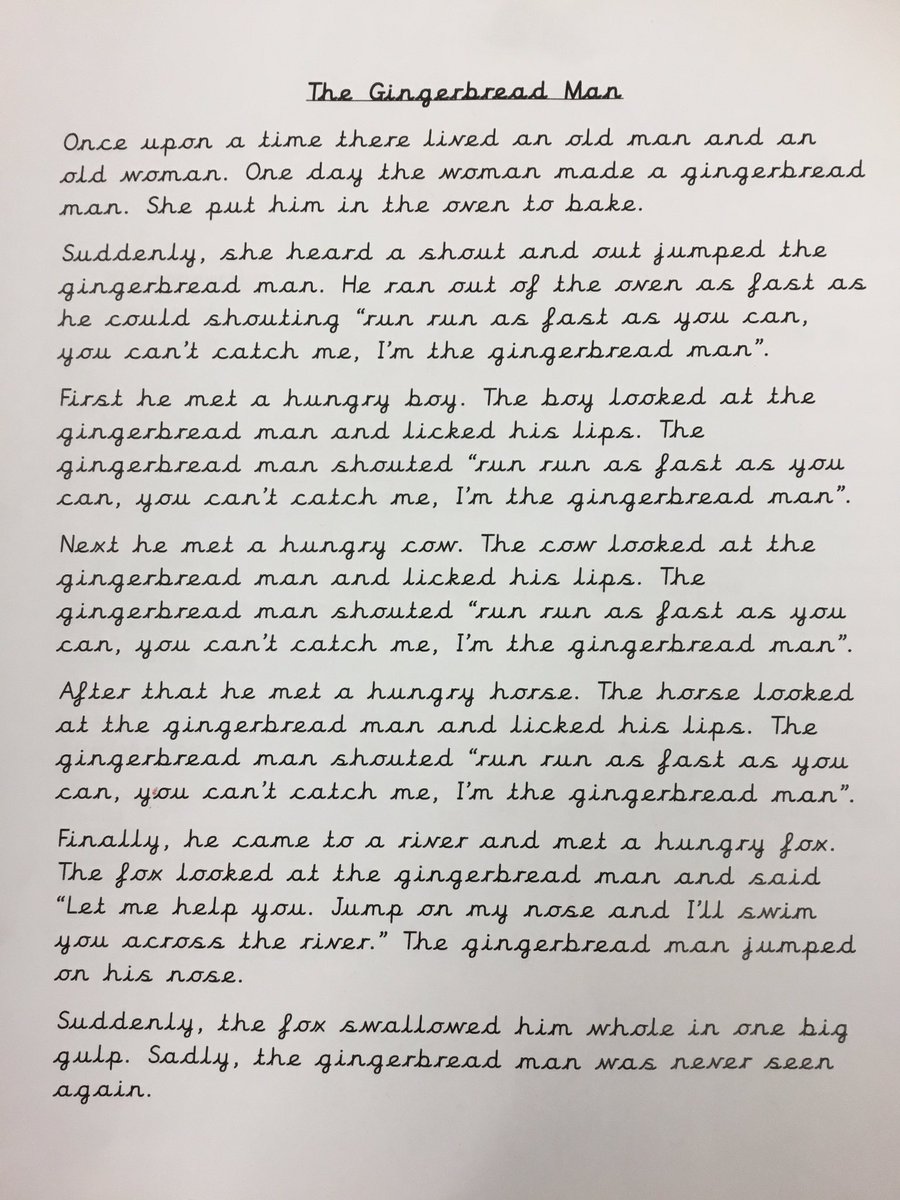 The Gingerbread Man
Once upon a time there lived an old man and an
old woman. One day the woman made a gingerbread
man. She put him in the oven to bake.
Suddenly, she heard a shout and out jumped the
gingerbread man. He ran out of the oven as fast as
he could shouting “run run as fast as you can,
you can’t catch me, I’m the gingerbread man”.
First he met a hungry boy. The boy looked at the
gingerbread man and licked his lips. The
gingerbread man shouted “run run as fast as you
can, you can’t catch me, I’m the gingerbread man”.
Next he met a hungry cow. The cow looked at the
gingerbread man and licked his lips. The
gingerbread man shouted “run run as fast as you
can, you can’t catch me, I’m the gingerbread man”.
After that he met a hungry horse. The horse looked
at the gingerbread man and licked his lips. The
gingerbread man shouted “run run as fast as you
can, you can’t catch me, I’m the gingerbread man”.
Finally, he came to a river and met a hungry fox.
The fox looked at the gingerbread man and said
“Let me help you. Jump on my nose and I’ll swim
you across the river.” The gingerbread man jumped
on his nose.
Suddenly, the fox swallowed him whole in one big
gulp. Sadly, the gingerbread man was never seen
again.